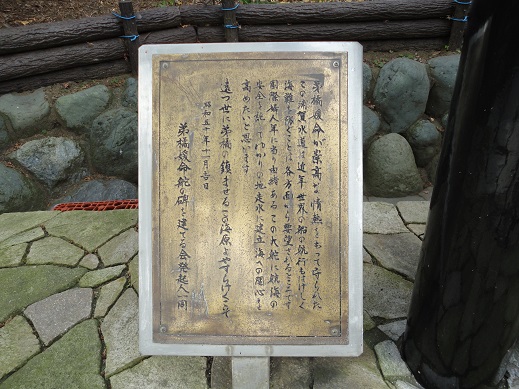 弟橘媛命が崇高な情熱をもって守られた
この浦賀水道は近年世界の船の航行もはげしく
海難を防ぐことは各方面から要望されるところです
国際婦人年に当り由緒あるこの大舵に航海の
安全を託してゆかりの地走水に建立海への関心を
高めたいと思います
遠つ世に弟橘 鎮ませるこの海原よやすらけくこそ
昭和五十年十一月 日
弟橘媛命舵の碑を建てる会発起人一同